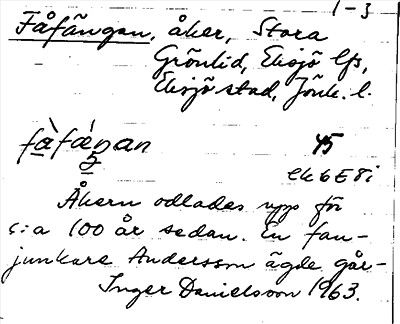 1-3
Fåfängan, åker, Stora
Grönlid, Eksjö lfs,
Eksjö stad, Jönk. l.
fàfáŋan
45
ek 6 E 8i
Åkern odlades upp för
c:a 100 år sedan. En fan-
junkare Andersson ägde går-
Inger Danielsson 1963.